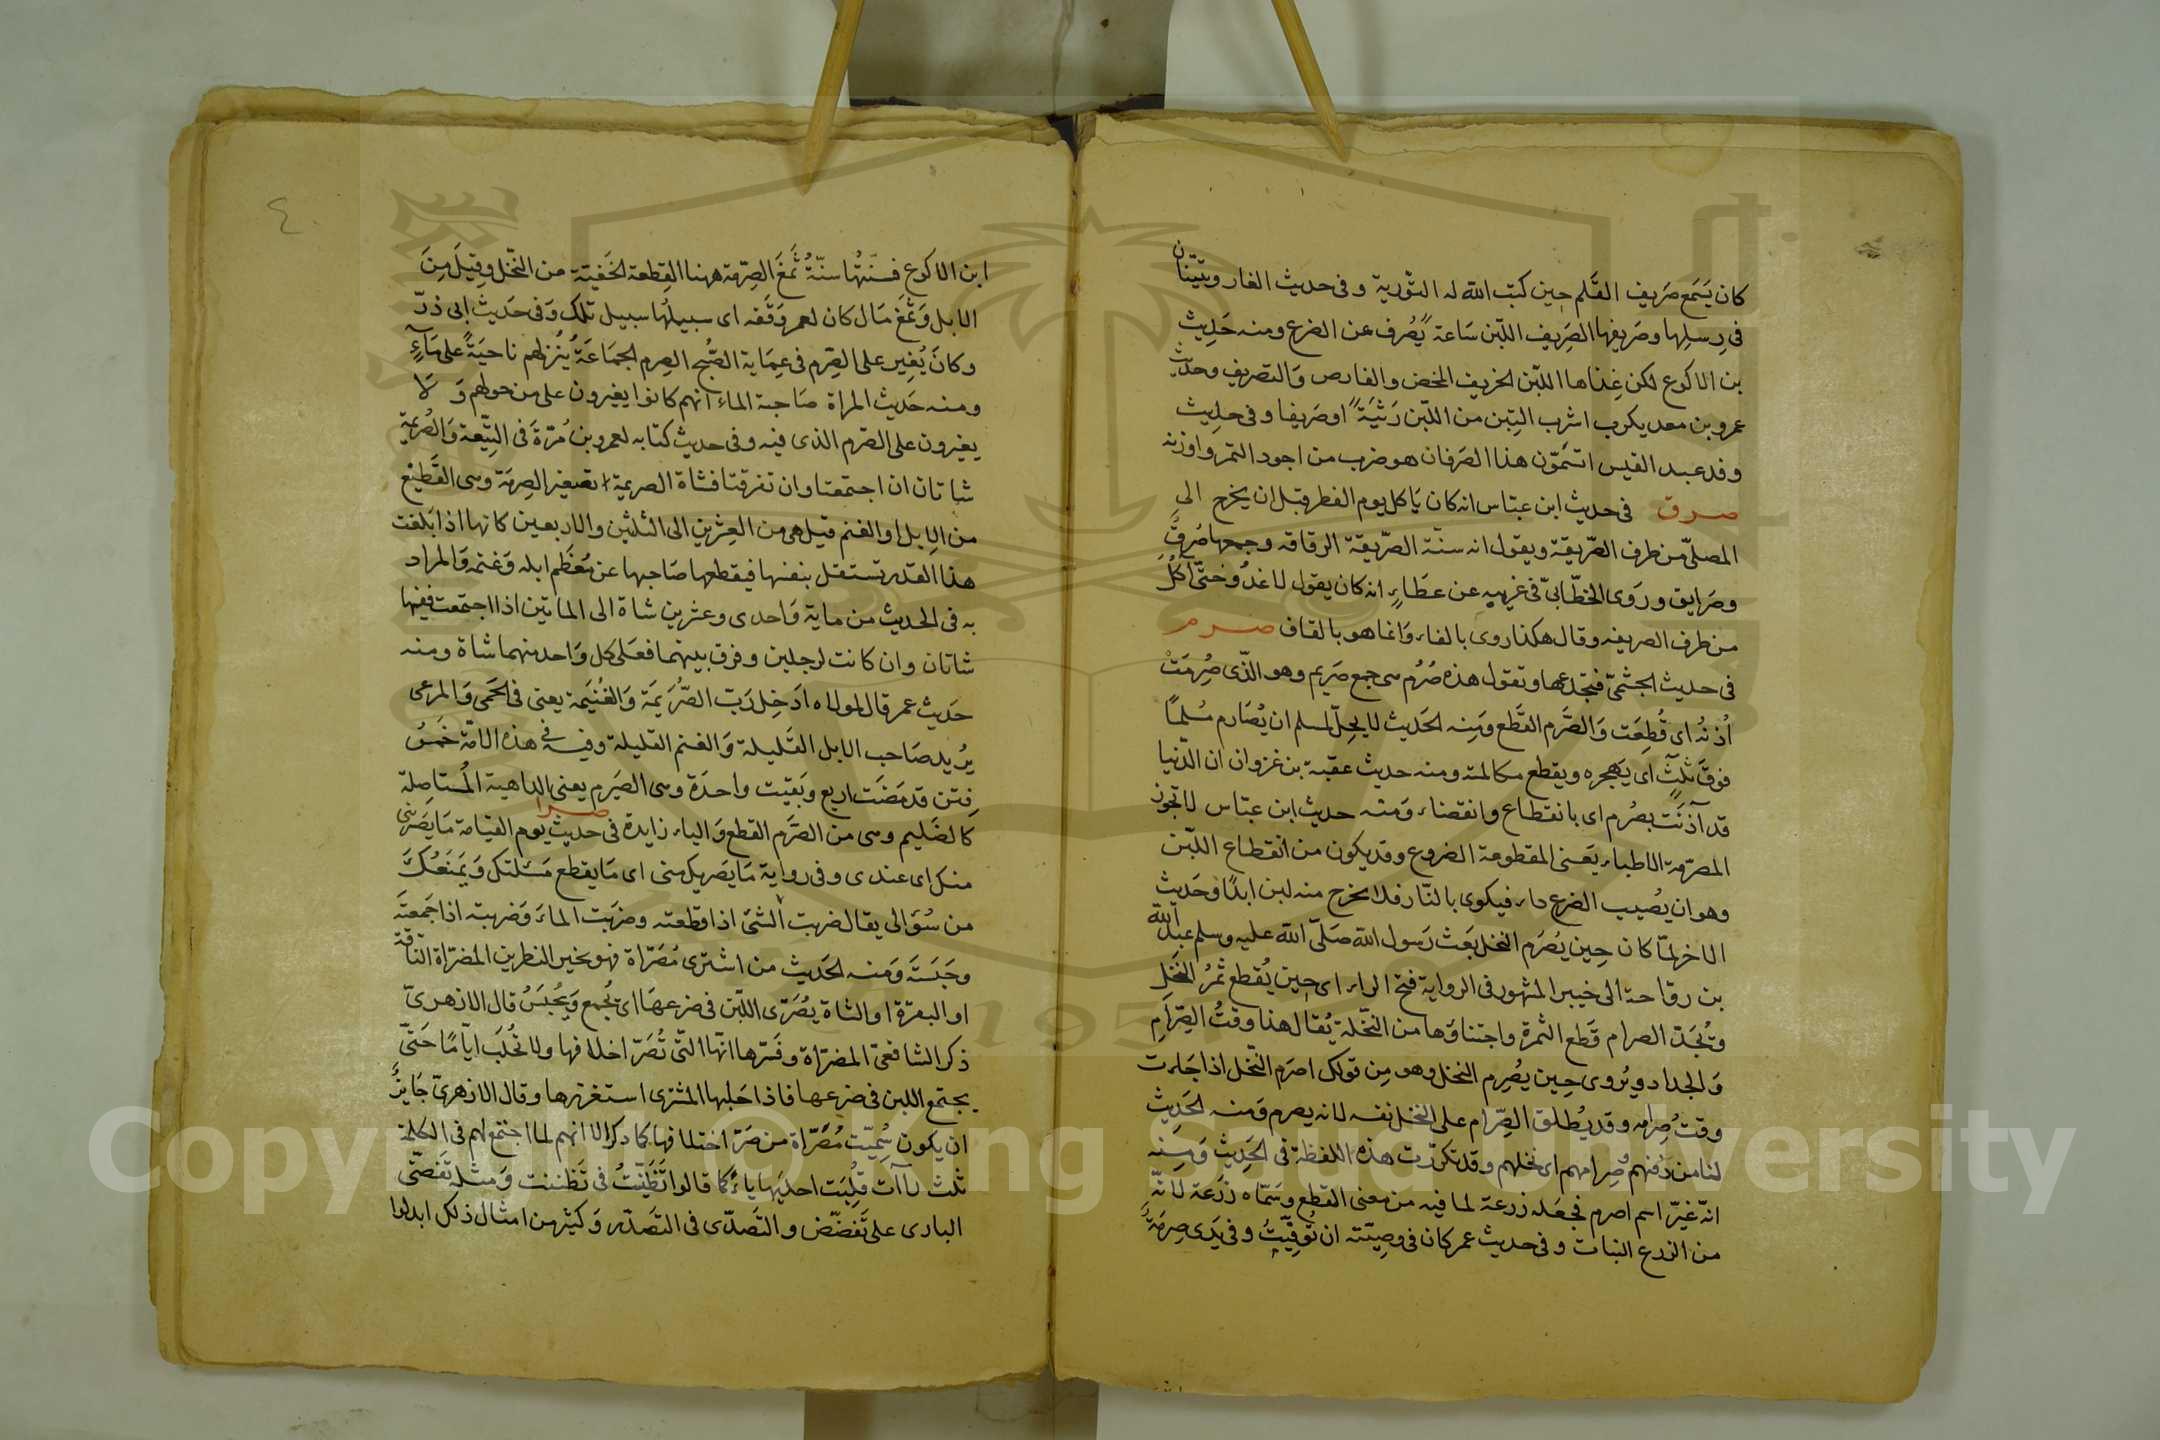 كان يَسمَع صَريف القَلم حِين كتب الله له التورية وفى حديث الغار ويبيتان
فى رِسلِها وصَريفها الصَريف اللبن سَاعة يُصرف عن الضرع ومنه حَديث
بن الاكوع لكن غِذاها اللبن الخريف المخض والقارص وَالتصريف وحديث
عمرو بن معديكرب اشرب التِبن من اللبن رَثيَةً او صَريفا وفى حديث
وفد عبد القيس اتسَمّون هذا الصَرفان هو ضرب من اجود التمر واوزنه
صرق فى حديث ابن عبّاس انه كان يَاكل يوم الفطر قبل ان يخرج الى
المصلّى من طرف الصّريقة ويقول انه سنّة الصّريقة الرقاقة وجمعها صُرُقٌ
وصَرايق ورَوى الخطّابىّ فى غريبه عن عطَاءٍ انه كان يقول لا اغدُو حتّى آكُلَ
من طرف الصريفه وقال هكذا روى بالفاء وَانما هو بالقاف صرم
فى حديث الجشمىّ فتجدَعها وتقول هذه صُرُم هى جمع صَريم وهو الذّى صُرِمَتْ
اُذنُه اى قُطِعَت وَالصَّرم القَطع وَمِنه الحَديث لا يحِلّ لمسلم ان يُصَارم مُسْلِمًا
فوقَ ثلثٍ اى يَهجره ويقطع مكالمته ومنه حديث عقبة بن غزوان ان الدّنيا
قد آذنَت بصُرم اى بانقطاع وانقضاء وَمنه حديث ابن عبّاس لا تجوز
المصرّمة الاطباء يَعنى المقطوعة الضروع وقد يكون من انقطاع اللبّن
وهو ان يُصيب الضرع داء فيكوى بالنّار فلا يخرج منه لبن ابدًا وحَديث
الاخر لمّا كان حِين يُصرَم النخل بَعث رَسول الله صَلّى الله عليه وسلم عبد الله
بن روّاحة الى خيبر المشهور فى الرواية فتح الراء اى حِين يُقطع ثمرُ النَخل
ويُجَدّ الصرام قَطع الثمرة واجتناؤها من النخّلة يُقال هذا وقتُ الصِّرَامِ
وَالجداد ويُروى حِين يصُرِم النخل وهو مِن قولك اصرَم النّخل اذا جَاءت
وقتُ صِرامه وقد يُطلق الصِّرام على النخل نفسه لانه يصرم وَمنه الحَديث
لنا من دِفئهم وصِرامهم اى نخلهم وقد تكرّرت هذه اللفظة فى الحَديث وَمِنه
انّه غيّر اسم اصرم فجعَله زرعة لما فيه من معنى القطع وسَمّاه زَرعة لانّه
من الزرع النبات وفى حديث عمر كان فى وصِيّته ان تُوفّيتُ وفى يَدى صِرمَةُ
ابن الاكوع فسنّتُها سنّةُ ثَمغَ الصِرمة ههنا القِطعة الخَفيّفة من النخّل وقِيلَ مِنَ
الابل وَثمغَ مَال كان لعمر وَقَفه اى سبيلُها سبيل تلك وَفى حَديث ابى ذرّ
وكانَ يُغِير على الصِرم فى عِمَاية الصُّبح الصِرم الجمَاعَةُ يُنزلهم ناحيَةً على مَآءٍ
ومنه حَديث المراة صَاحبة الماء انهم كانوا يغيرون على من حولهم وَلَا
يغيرون على الصّرم الذى فيه وفى حديث كتابه لعمرو بن مُرّةَ فى التِيّعة وَالصُريمَة
شاتان ان اجتمعتا وان تفرقتا فشاة الصريمة تصغير الصِرمَة وهى القَطِيْع
من الابل او الغنم قيل هى من العِشرين الى الثلثين والاربعين كانها اذا بَلغت
هذا القدر تستقل بنفسها فيقطعها صَاحبها عن مُعظَم ابله وَغنمه وَالمراد
به فى الحديث من ماية وَاحدى وعشرين شاة الى الماتين اذا اجتمعت ففيها
شاتان وان كانت لرجلين وفرق بينهما فعَلى كل وَاحد منهما شاة ومنه
حَديث عمر قال لمولاه ادَخِل رَبّ الصُّرَيمَة وَالغُنَيمة يعنى فى الحَمى وَالمرعى
يرُيد صَاحب الابل القَليلة وَالغنم القليلة وفيه فى هذه الامّة خَمسُ
فِتن قد مَضَت اربع وبَقيَت واحدَة وهى الصَيرم يعنى الداهية المُستاصِلة
كالصَليم وهى من الصَّرَم القطع وَالياء زايدة صرا فى حديث يوم القيامة مَا يَصرينى
منك اى عندى وفى رواية مَا يصَريك منى اى مَا يقطع مَسْئلتك وَيَمنَعُكَ
من سُوَالى يقال صَريت الشئ اذا قطعته وصرَيت الماءَ وَصَريته اذا جَمعتَه
وحَبَسته وَمنه الحَديث من اشترى مُصَرّاة فهو بخير النظرين المصَرّاة النّاقة
او البقرة او الشاة يُصَرّى اللبّن فى ضرعهَا اى يُجمع وَيُحبَسُ قال الازهرىّ
ذكر الشافعىّ المصَرّاة وفَسّرها انّها التّى تُصَرّ اخلافها ولا تحُلَب ايّامًا حَتىّ
يجتمع اللبن فى ضرعها فاذا حَلبها المشترى استغزرها وقال الازهرىّ جَايزٌ
ان يكون سُميّت مُصَّراة من صَرّ اخلافها كما ذكر الا انهم لما اجتمع لهم فى الكلمة
ثلث راآت قلِبَت احديها ياءً كما قالوا تَظَنَّيتُ فى تَظننت وَمثله تقَضىّ
البازى على تَقضضّ والتصَدّى فى التصَدّد وَكثير من امثال ذلك ابدلوا
٤٠